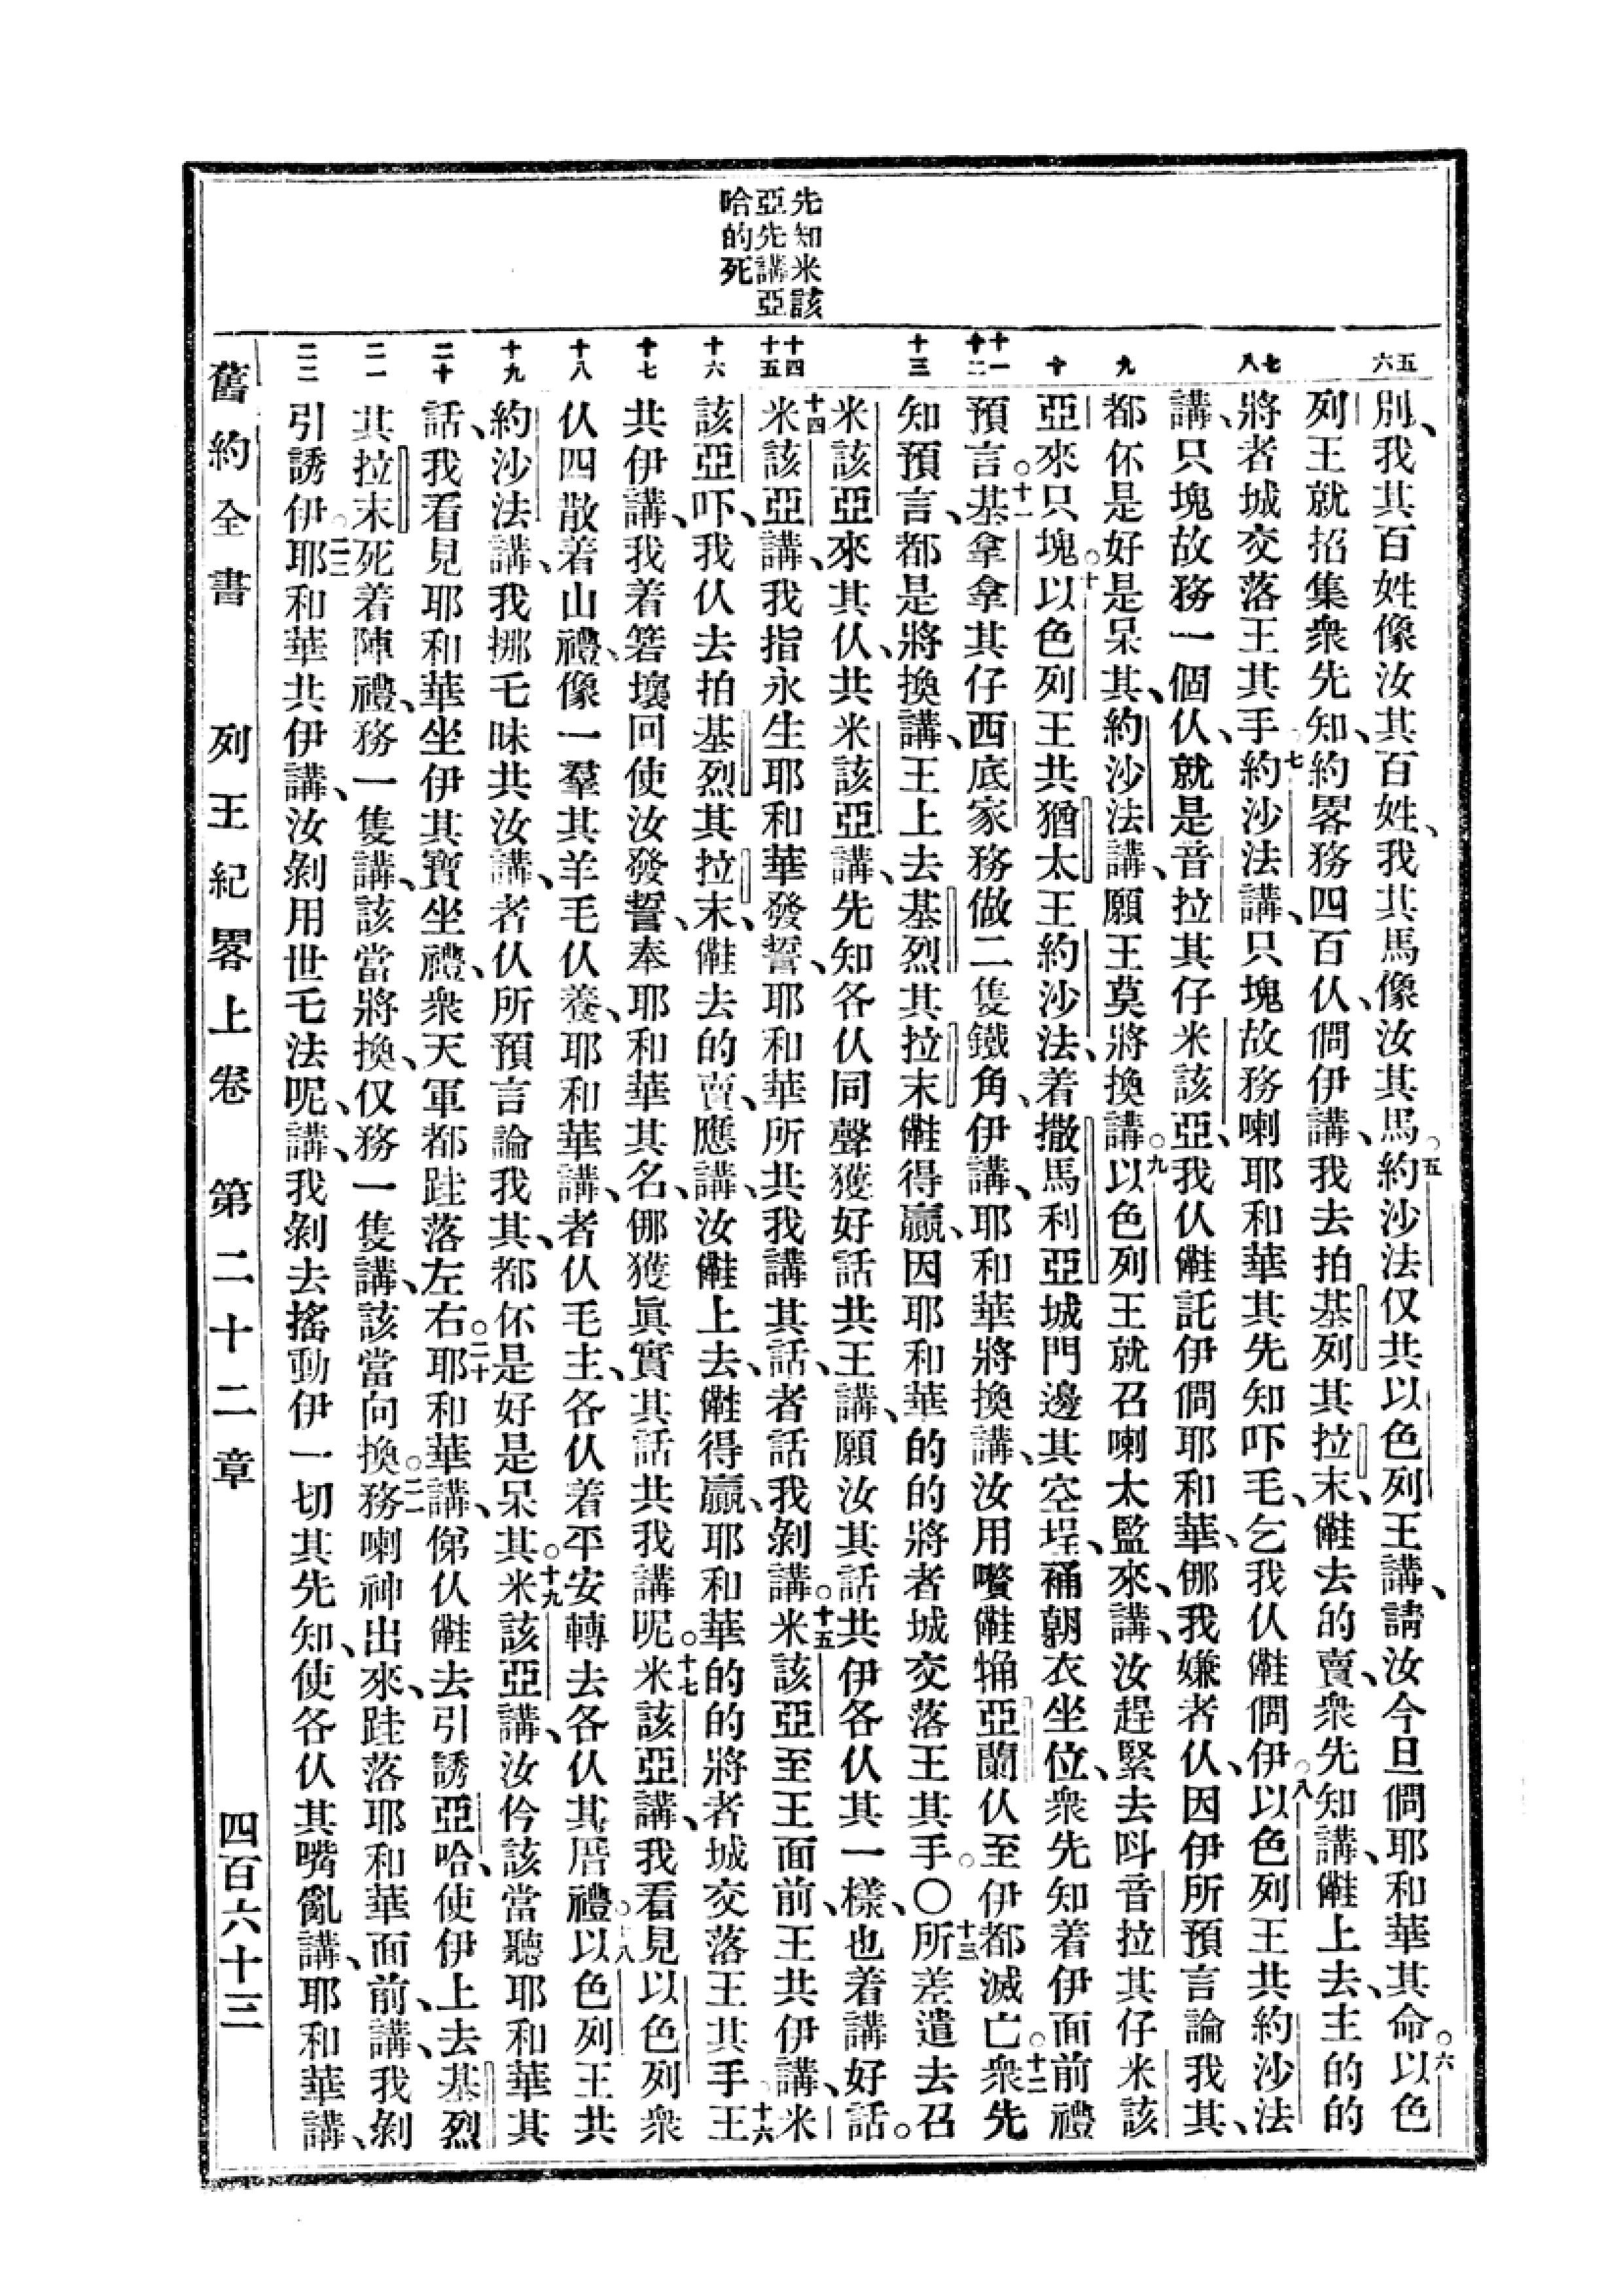 先知米該
亞先講亞
哈的死
五
六
七
八
九
十
十一
十二
十三
十四
十五
十六
十七
十八
十九
二十
二一
二二
別、我其百姓像汝其百姓、我其馬像汝其馬。五約沙法仅共以色列王講、請汝今旦問耶和華其命。六以色
列王就招集衆先知、約畧務四百仈、問伊講、我去拍基列其拉末、㒰去的賣、衆先知講、㒰上去、主的的
將者城交落王其手、七約沙法講、只塊故務喇耶和華其先知吓毛、乞我仈㒰問伊。八以色列王共約沙法
講、只塊故務一個仈、就是音拉其仔米該亞、我仈㒰託伊問耶和華、㑚我嫌者仈、因伊所預言論我其、
都伓是好是呆其、約沙法講、願王莫將換講。九以色列王就召喇太監來、講、汝趕緊去呌音拉其仔米該
亞來只塊。十以色列王共猶太王約沙法、着撒馬利亞城門邊其空埕、裲朝衣坐位、衆先知着伊面前禮
預言。十一基拿拿其仔西底家務做二隻鐵角、伊講、耶和華將換講、汝用嚽㒰㧒亞蘭仈至伊都滅亡。十二衆先
知預言、都是將換講、王上去基烈其拉末㒰得贏、因耶和華的的將者城交落王其手。〇十三所差遣去召
米該亞來其仈、共米該亞講、先知各仈同聲獲好話共王講、願汝其話共伊各仈其一樣、也着講好話。
十四米該亞講、我指永生耶和華發誓、耶和華所共我講其話、者話我剝講。十五米該亞至王面前、王共伊講、米
該亞吓、我仈去拍基烈其拉末、㒰去的賣、應講、汝㒰上去、㒰得贏、耶和華的的將者城交落王其手、十六王
共伊講、我着箬壞回使汝發誓、奉耶和華其名、㑚獲眞實其話共我講呢。十七米該亞講、我看見以色列衆
仈四散着山禮、像一羣其羊毛仈養、耶和華講、者仈毛主、各仈着平安轉去各仈其厝禮。十八以色列王共
約沙法講、我挪乇昧共汝講、者仈所預言論我其、都伓是好是呆其。十九米該亞講、汝仱該當聽耶和華其
話、我看見耶和華坐伊其寶坐禮、衆天軍都跬落左右。二十耶和華講、俤仈㒰去引誘亞哈、使伊上去基烈
其拉末死着陣禮、務一隻講、該當將換、仅務一隻講、該當向換。二一務喇神出來、跬落耶和華面前、講、我剝
引誘伊。二二耶和華共伊講、汝剝用世乇法呢、講、我剝去搖動伊一切其先知、使各仈其嘴亂講、耶和華講、
舊約全書　列王紀畧上卷　第二十二章　四百六十三